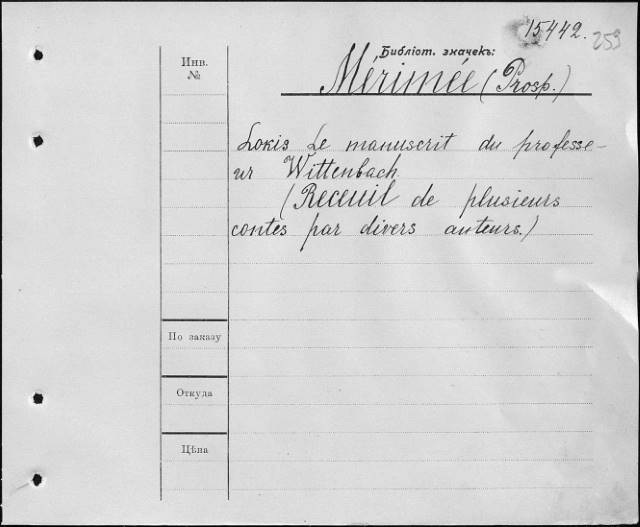 15442.
259
Библіот. значекъ:
Инв.
№
Mérimée (Prosp.)
Lokis Le manuscrit du professe-
ur Wittenbach
(Receuil de plusieurs
contes par divers auteurs.)
По заказу
Откуда
Цѣна